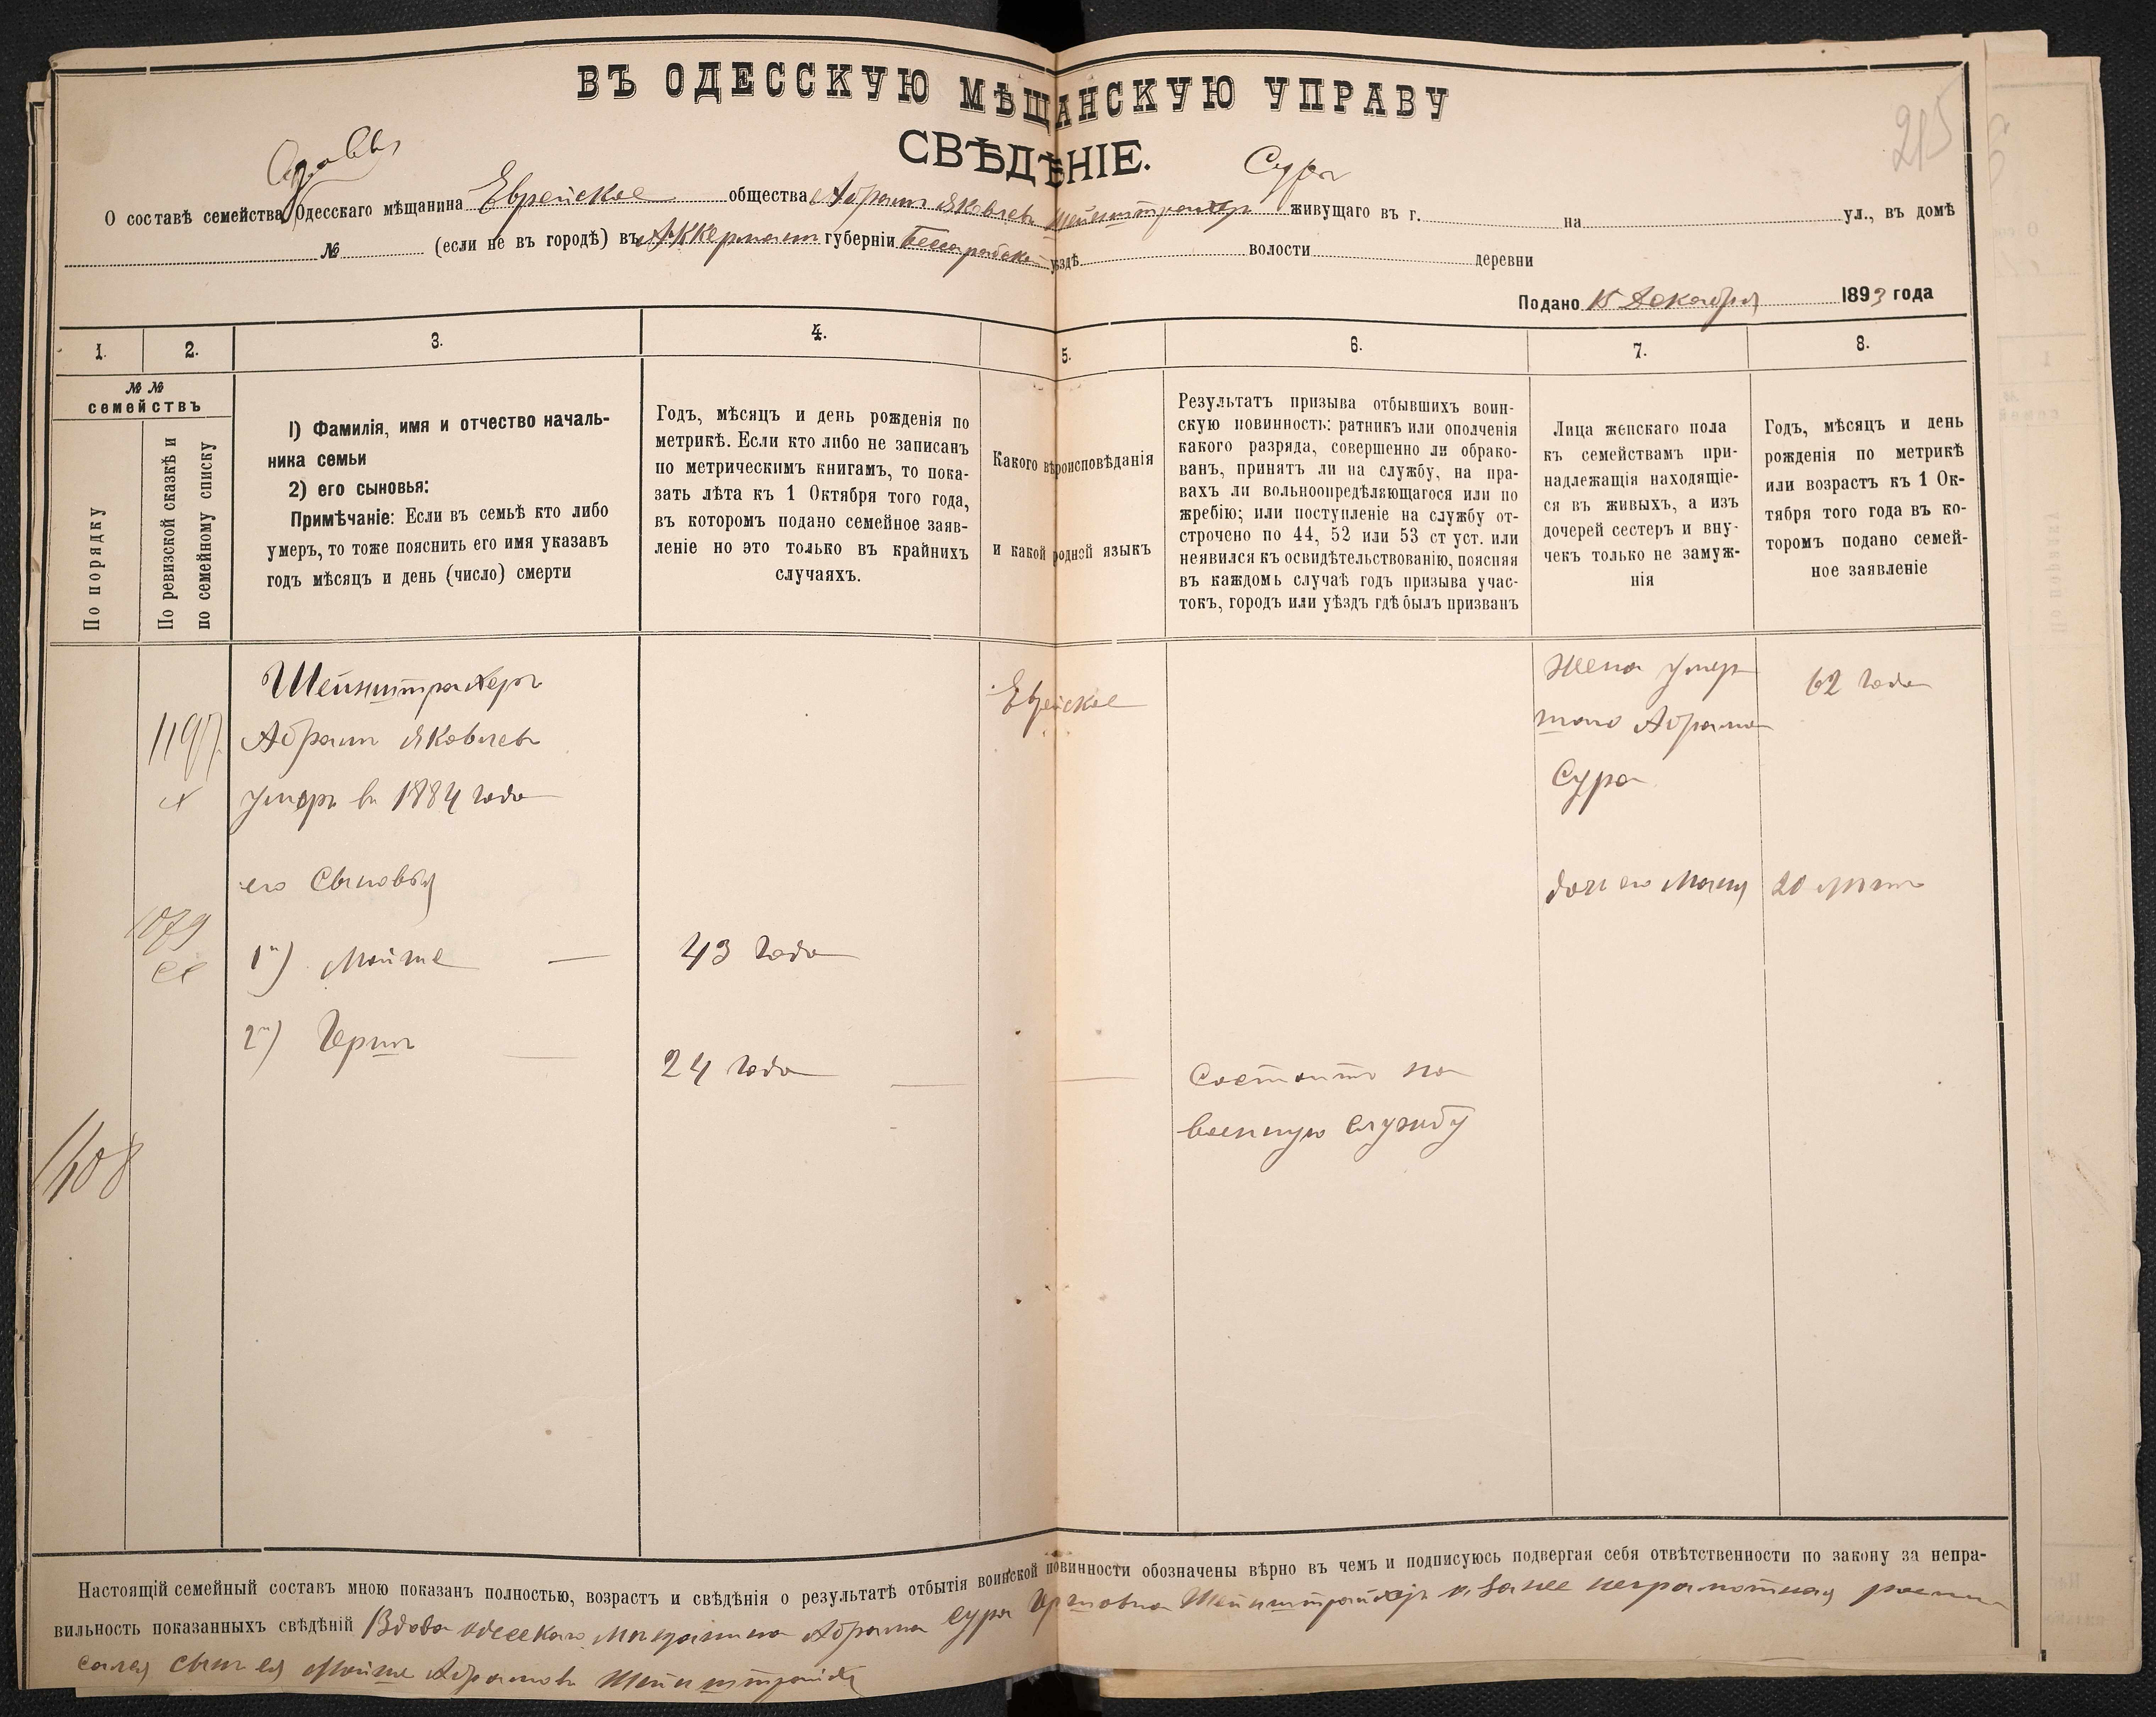 ВЪ ОДЕССКУЮ МѢЩАНСКУЮ УПРАВУ
СВѢДѢНІЕ.
215
Вдовы
Сура
О составѣ семейства Одесскаго мѣщанина Еврейское общества Абрамъ Яковлевъ Шейнштрайхеръ живущаго въ г. на ул., въ домѣ
№ (если не въ городѣ) въ Аккерманъ губерніи Бессарабской уѣздѣ волости деревни
Подано 15 Декабря 1893 года
1. 2. 3. 4. 5. 6. 7. 8.
№ №
семействъ
По порядку
По ревизской сказкѣ и
по семейному списку
1) Фамилія, имя и отчество началь-
ника семьи
2) его сыновья:
Примѣчаніе: Если въ семьѣ кто либо
умеръ, то тоже пояснить его имя указавъ
годъ мѣсяцъ и день (число) смерти
Годъ, мѣсяцъ и день рожденія по
метрикѣ. Если кто либо не записанъ
по метрическимъ книгамъ, то пока-
зать лѣта къ 1 Октября того года,
въ которомъ подано семейное заяв-
леніе но это только въ крайнихъ
случаяхъ.
Какого вѣроисповѣданія
и какой родной языкъ
Результатъ призыва отбывшихъ воин-
скую повинность: ратникъ или ополченія
какого разряда, совершенно ли обрако-
ванъ, принятъ ли на службу, на пра-
вахъ ли вольноопредѣляющагося или по
жребію; или поступленіе на службу от-
строчено по 44, 52 или 53 ст уст. или
неявился къ освидѣтельствованію, поясняя
въ каждомъ случаѣ годъ призыва учас-
токъ, городъ или уѣздъ гдѣ былъ призванъ
Лица женскаго пола
къ семействамъ при-
надлежащія находящіе-
ся въ живыхъ, а изъ
дочерей сестеръ и вну-
чекъ только не замуж-
нія
Годъ, мѣсяцъ и день
рожденія по метрикѣ
или возрастъ къ 1 Ок-
тября того года въ ко-
торомъ подано семей-
ное заявленіе
Шейнштрайхеръ
1197
Абрамъ Яковлевъ
умеръ въ 1884 года
Еврейское
Жена умер
шаго Абрама
Сура
62 года
его Сыновья
дочь его Маня 20 лѣтъ
1079
1й) Мойше — 43 года
2й) Гершъ — 24 года — —
Состоитъ на
военную службу
1108
Настоящій семейный составъ мною показанъ полностью, возрастъ и свѣдѣнія о результатѣ отбытія воинской повинности обозначены вѣрно въ чемъ и подписуюсь подвергая себя отвѣтственности по закону за непра-
вильность показанныхъ свѣдѣній Вдова одесскаго мѣщанина Абрама Сура Гершовна Шейнштрайхеръ а за нее неграмотная роспи
сался сынъ ея Мойше Абрамовъ